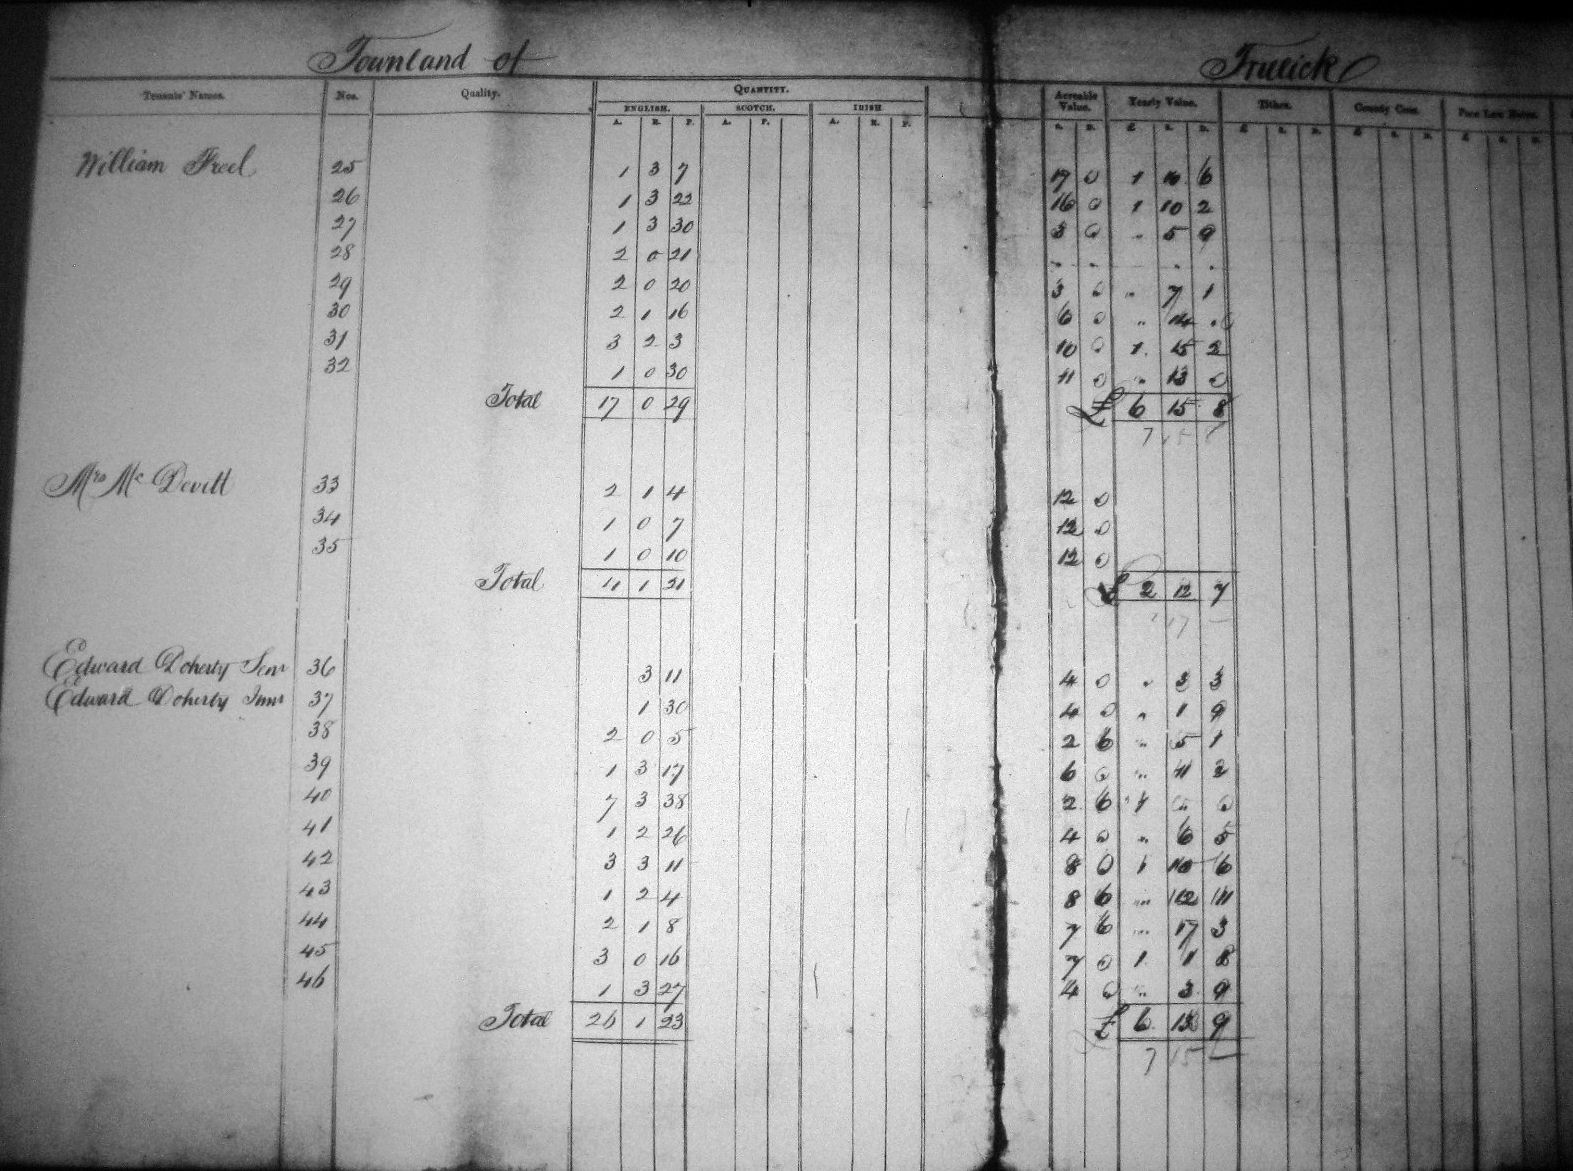 Townland of Trulick
QUANTITY.
Tenants' Names. Nos. Quality. ENGLISH. SCOTCH. IRISH. Acreable Value. Yearly Value. Tithes. County Cess. Poor Law Rates.
A. R. P. A. P. A. R. P. s. D. £ s. D. £ s. D. £ s. D. £ s. D.
William Freel 25 1 3 7 17 0 1 10 6
26 1 3 22 16 0 1 10 2
27 1 3 30 3 0 " 5 9
28 2 0 21 . . . .
29 2 0 20 3 0 " 7 1
30 2 1 16 6 0 " 14 . 0
31 3 2 3 10 0 1 15 2
32 1 0 30 11 0 " 13 0
Total 17 0 29 £ 6 15 8
7 15
Mrs Mc Devitt 33 2 1 4 12 0
34 1 0 7 12 0
35 1 0 10 12 0
Total 4 1 21 £ 2 12 7
17 –
Edward Doherty Senr 36 3 11 4 0 " 3 3
Edward Doherty Junr 37 1 30 4 0 " 1 9
38 2 0 5 2 6 " 5 1
39 1 3 17 6 0 " 11 2
40 7 3 38 2 6 1 " 0
41 1 2 26 4 0 " 6 5
42 3 3 11 8 0 1 10 6
43 1 2 4 8 6 " 12 11
44 2 1 8 7 6 " 17 3
45 3 0 16 7 0 1 1 8
46 1 3 27 4 0 " 3 9
Total 26 1 23 £ 6 13 9
7 15 –